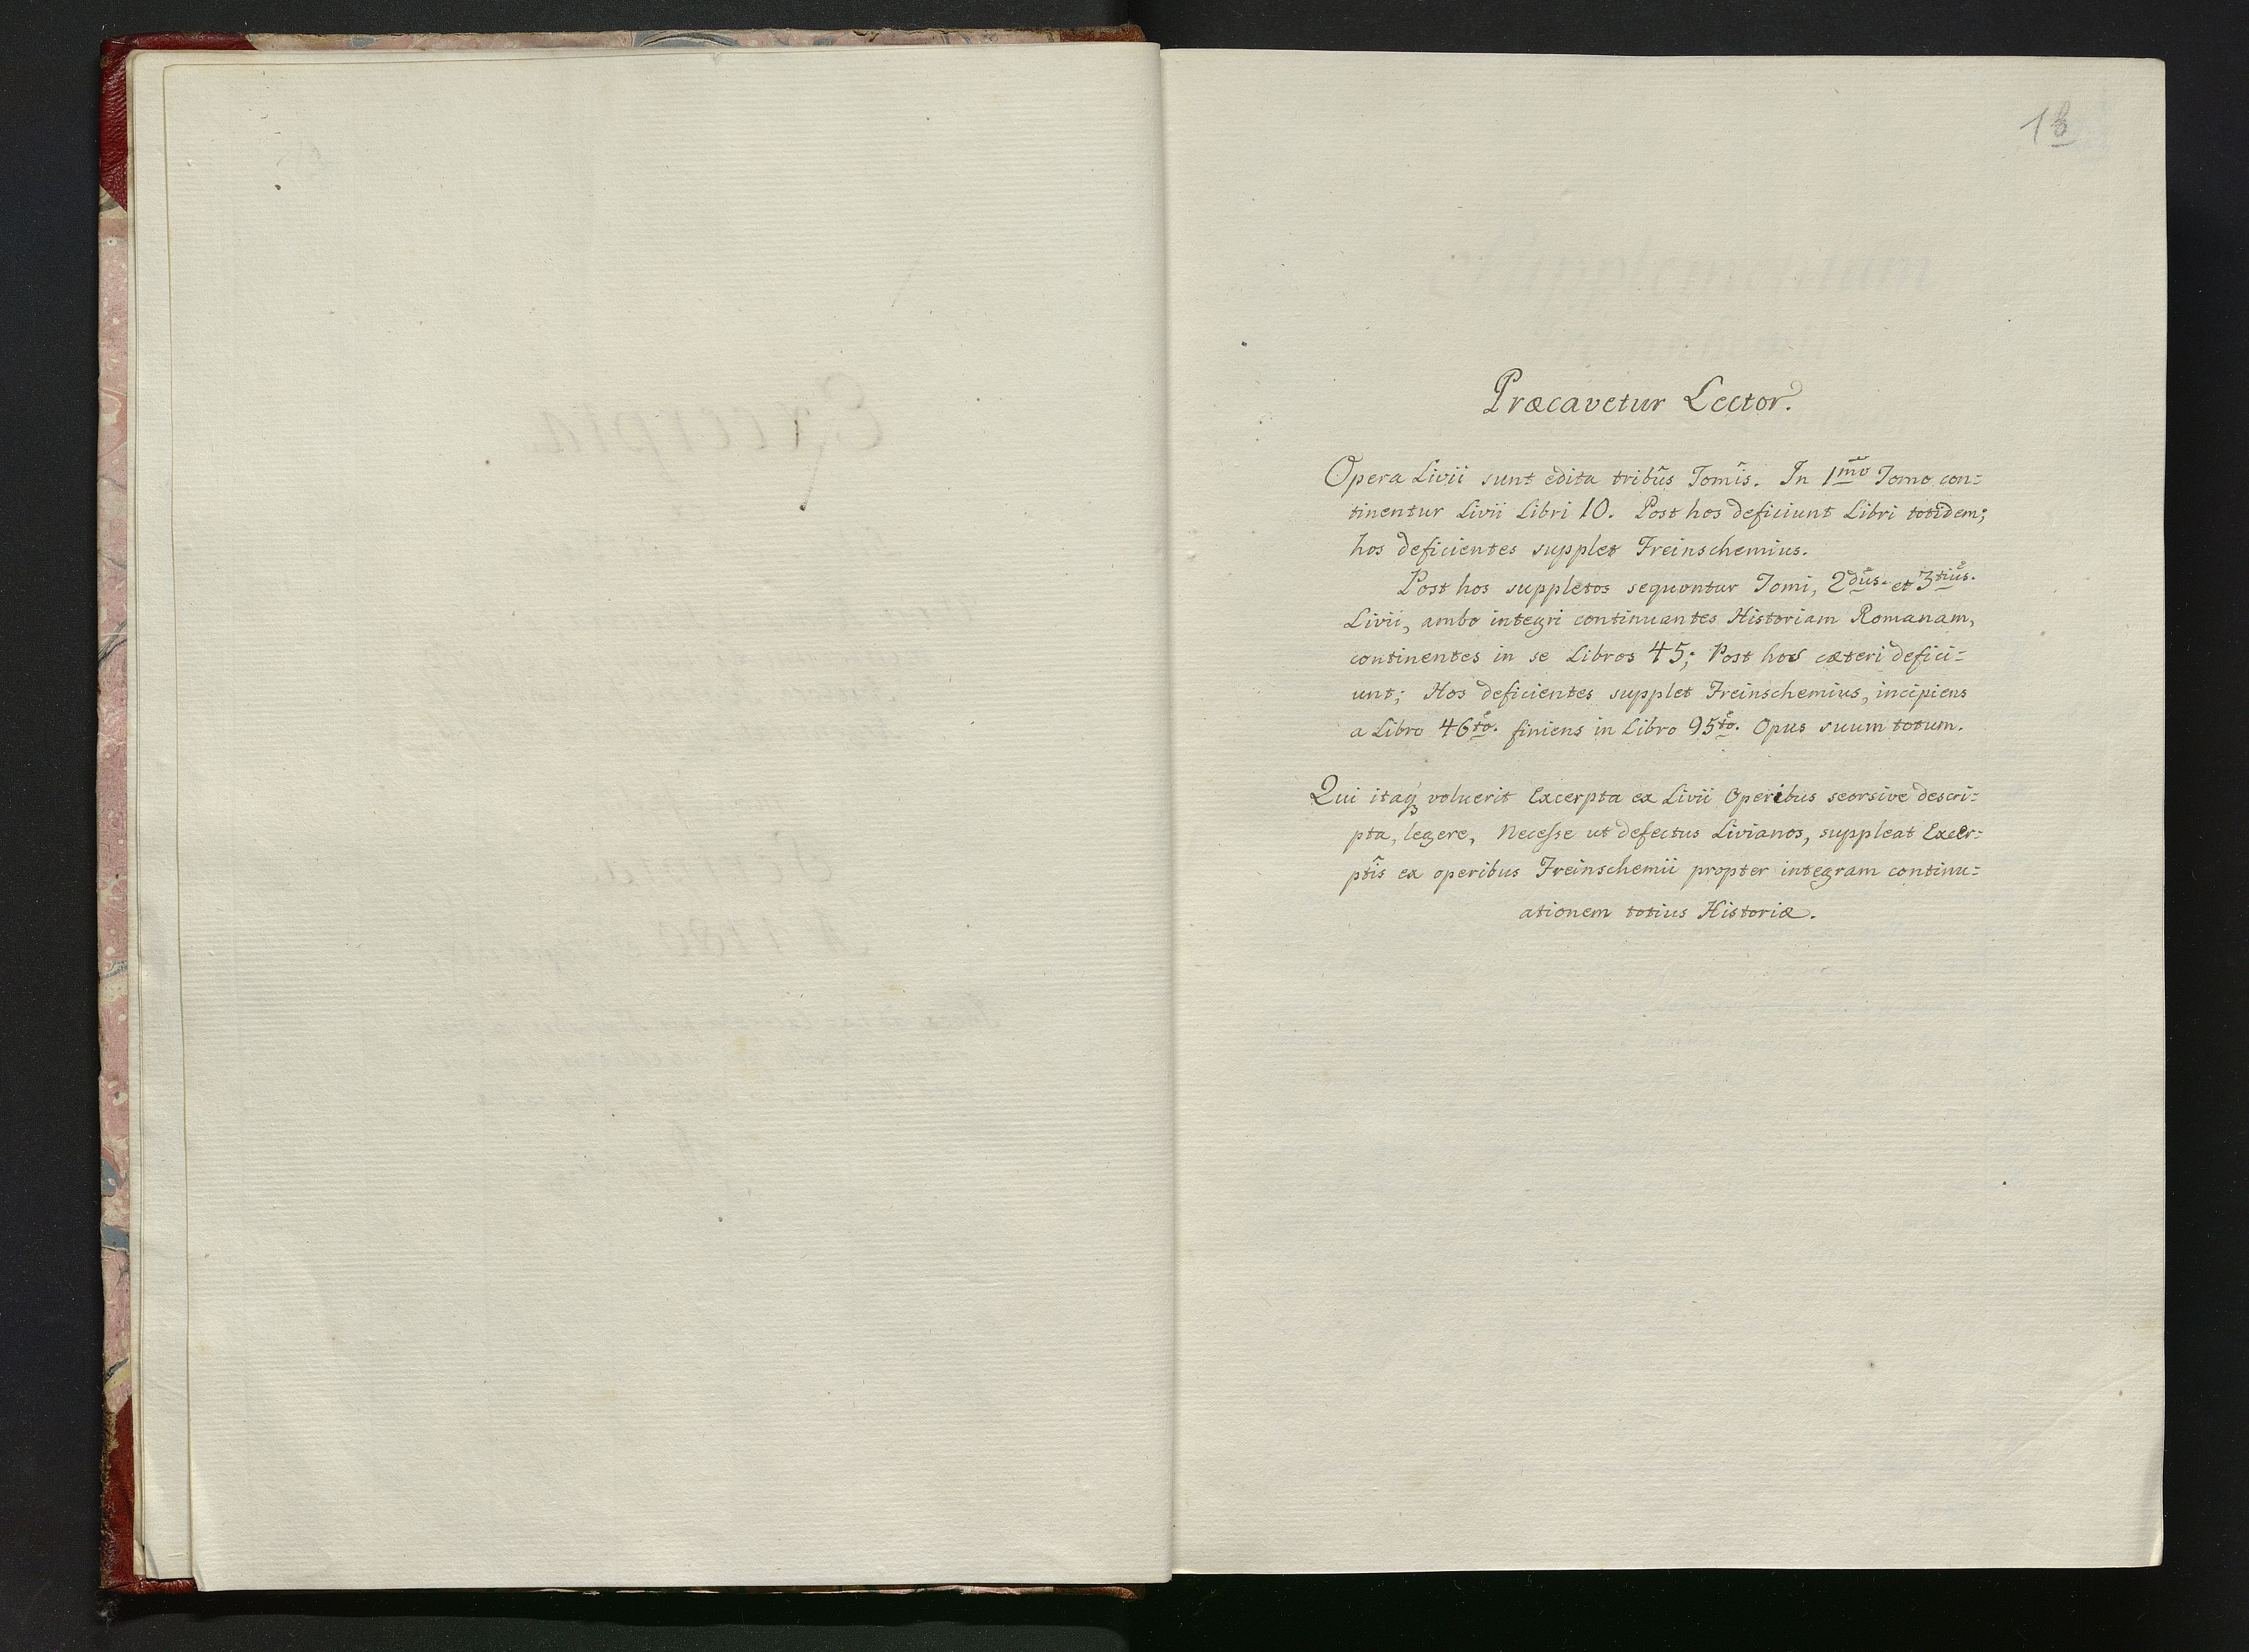 1b
Præcavetur Lector.
Opera Livii sunt edita tribûs Tomîs. In 1mo Tomo con=
tinentur Livii Libri 10. Post hos deficiunt Libri totidem;
hos deficientes supplet Freinschemius.
Post hos suppletos sequontur Tomi, 2dus. et 3tius.
Livii, ambo integri continuantes Historiam Romanam,
continentes in se Libros 45; Post hos cæteri defici=
unt; Hos deficientes supplet Freinschemius, incipiens
a Libro 46to. finiens in Libro 95to. Opus suum totum.
Qui itaq voluerit Excerpta ex Livii Operibus seorsive descri=
pta, legere, Necesse ut defectus Livianos, suppleat Excer=
ptîs ex operibus Freinschemii propter integram continu=
ationem totius Historiæ.